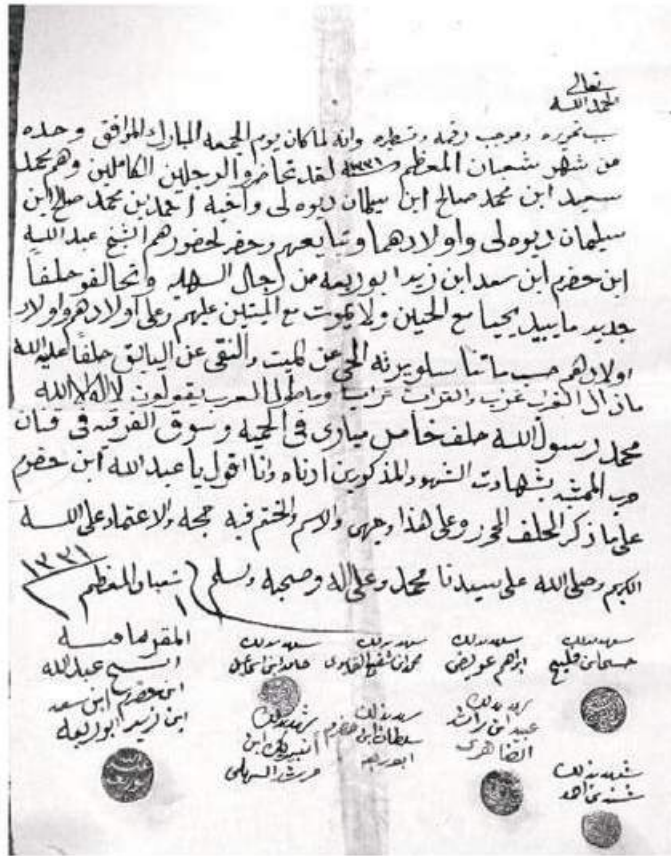 تعالى
الحمد لله
سبب تحريره وموجب رقمه وتسطيره وانه لما كان يوم الجمعه المبارك الموافق وحده
من شهر شعبان المعظم ١٣٣١ لقد تحاضرو الرجلين الكاملين وهم محمد
سعيد ابن محمد صالح ابن سليمان ديوه لى وأخيه أحمد بن محمد صلح ابن
سليمان ديوه لى واولادهما وتبايعهم وحضر لحضورهم الشيخ عبد الله
ابن حضرم ابن سعد ابن زيد ابو ربعه من رجال السهليه وتحالفو حلفاً
جديد ما يبيد يحيا مع الحيين ولا يموت مع الميتين عليهم وعلى أولادهم واولاد
اولادهم حسب ماتنا سلو يرثه الحي عن الميت والنقى عن اليالق حلفاً عليه الله
ماذال الغراب غراب والتراب تراب وماطال العرب يقولون لا اله الا الله
محمد رسول الله حلف خامل مبارى فى الحميه وسوق الفرقيه فى
حرب الممشه بشهادت الشهود المذكورين ادناه وانا اقول يا عبد الله ابن حضرم
على ما ذكر الحلف المحرر وعلى هذا وجهى والاسم والختم فيه حجه والاعتماد على الله
الكريم وصلى الله على سيدنا محمد وعلى اله وصحبه وسلم ١ شعبان المعظم ١٣٣١
شهد بذلك شهد بذلك شهد بذلك شهد بذلك المقر بما فيه
ابراهم عويض محمد ابن حامد ابن الشيخ عبدالله
شهد بذلك شهد بذلك شهد بذلك ابن حضرم ابن سعد
عبيد ابن سلطان ابن حضرم ابن ابن زيد ابو ربعه
ابو ربعه مرشد السهلى
شهد بذلك